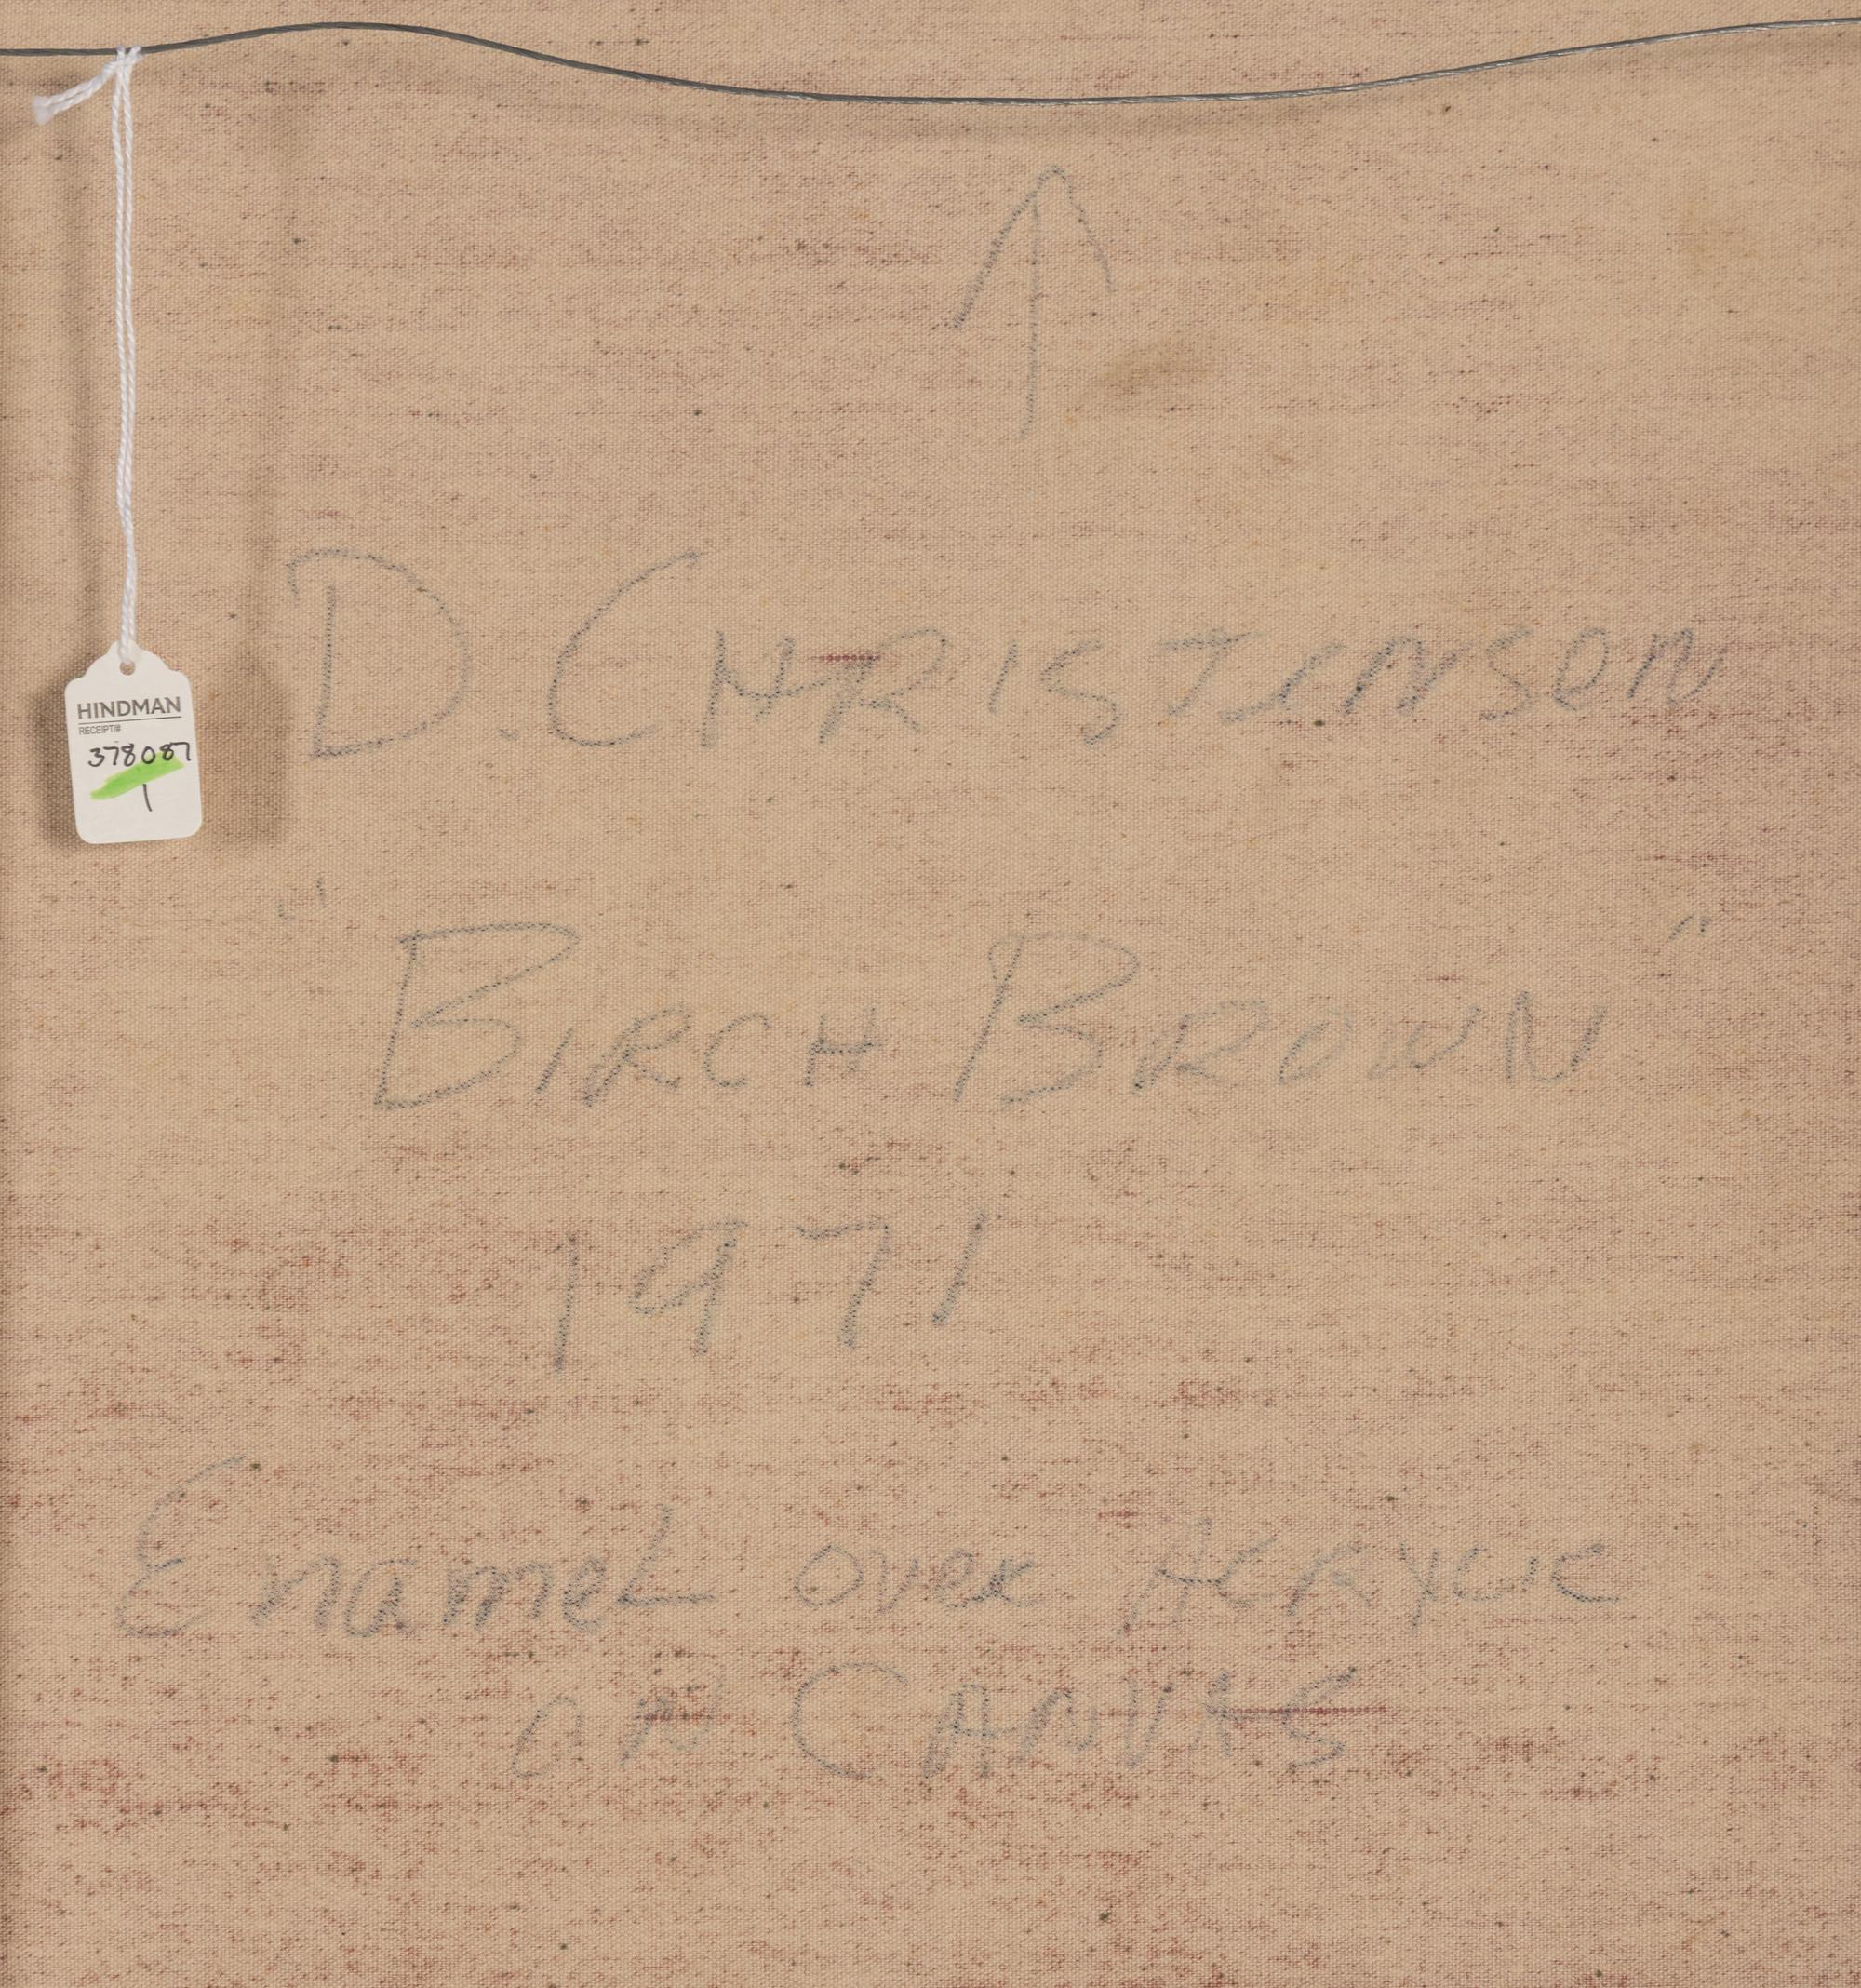 ↑
HINDMAN
RECEIPT#
378087
1
D. CHRISTENSEN
"BIRCH BROWN"
1971
Enamel over Acrylic
on CANVAS